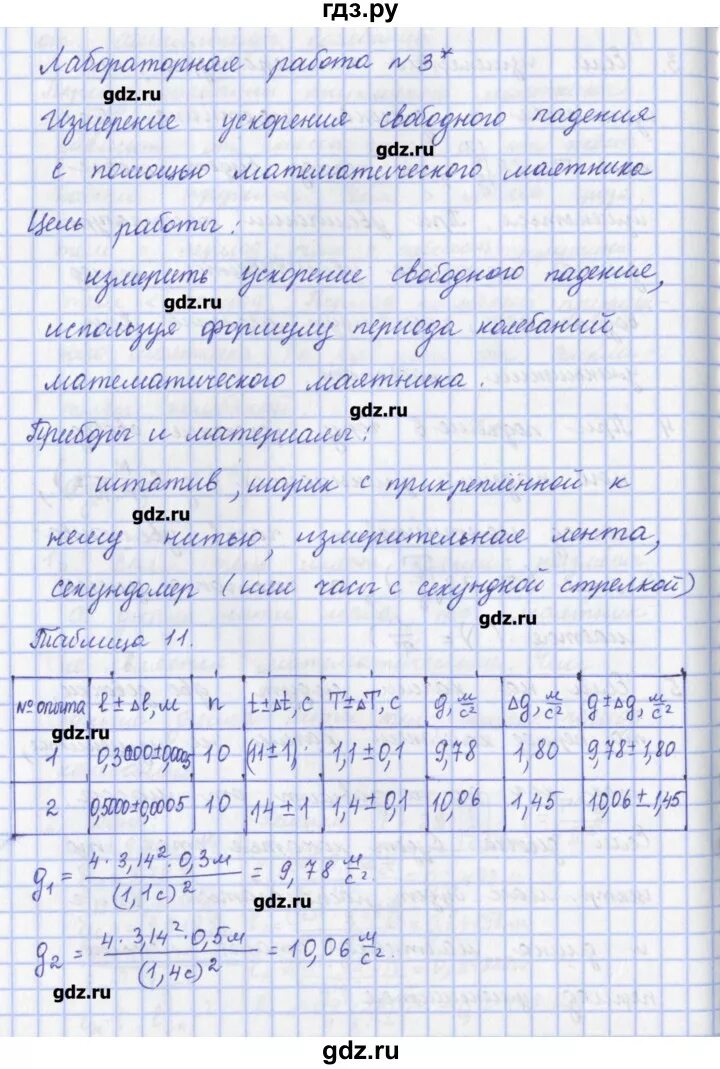 гдз.ру
Лабораторная работа № 3*
gdz.ru
Измерение ускорения свободного падения
gdz.ru
с помощью математического маятника
Цель работы:
измерить ускорение свободного падения,
gdz.ru
используя формулу периода колебаний
математического маятника.
gdz.ru
Приборы и материалы:
штатив, шарик с прикреплённой к
gdz.ru
нему нитью, измерительная лента,
секундомер (или часы с секундной стрелкой)
gdz.ru
Таблица 11.
№ опыта l±Δl, м n t±Δt, с T±ΔT, с g, м/с² Δg, м/с² g±Δg, м/с²
gdz.ru
1 0,3000±0,0005 10 (11±1) 1,1±0,1 9,78 1,80 9,78±1,80
2 0,5000±0,0005 10 14±1 1,4±0,1 10,06 1,45 10,06±1,45
g₁ = 4·3,14²·0,3м / (1,1с)² = 9,78 м/с²
gdz.ru
g₂ = 4·3,14²·0,5м / (1,4с)² = 10,06 м/с².
gdz.ru
gdz.ru